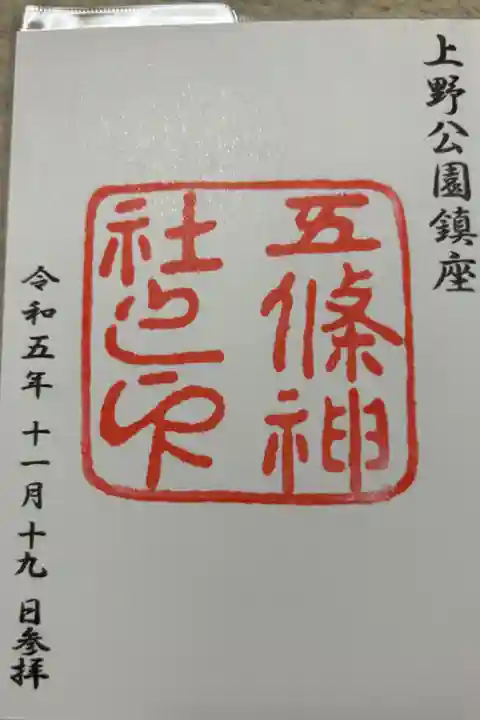 上野公園鎮座
五條神
社之印
令和五年 十一月十九日参拝